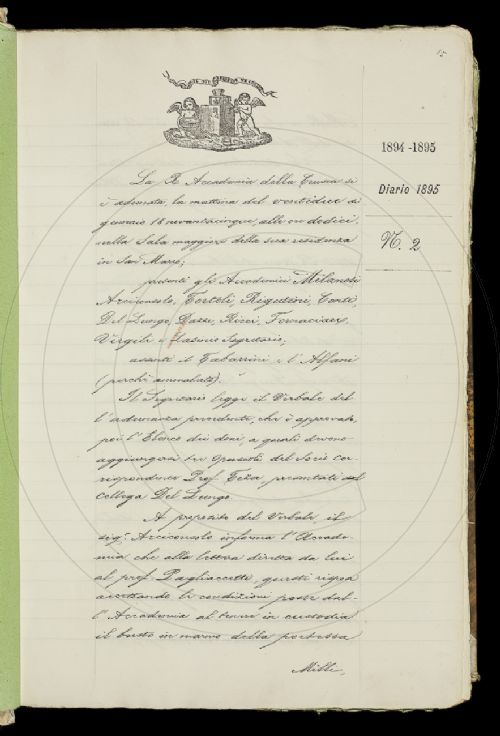 15
1894-1895
Diario 1895
N. 2
La R. Accademia della Crusca si
è adunata, la mattina del ventidue di
gennaio 18novantacinque, alle ore dodici,
nella Sala maggiore della sua residenza
in San Marco;
presenti gli Accademici Milanesi
Arciconsolo, Tortoli, Rigutini, Conti,
Del Lungo, Dazzi, Ricci, Fornaciari,
Virgili e Segretario;
assenti il Tabarrini e l'Alfani
(perchè ammalato).
Il Segretario legge il Verbale del-
l'adunanza precedente, che è approvato,
poi l'Elenco dei doni, a' quali devono
aggiungersi tre Opuscoli del Socio Cor-
rispondente Prof. Teza presentati dal
Collega Del Lungo.
A proposito del Verbale, il
sig. Arciconsolo informa l'Accade-
mia che alla lettera diretta da lui
al prof. Pagliaccetti, questi rispose
accettando le condizioni poste dal-
l'Accademia al tenere in custodia
il busto in marmo della poetessa
Milli,